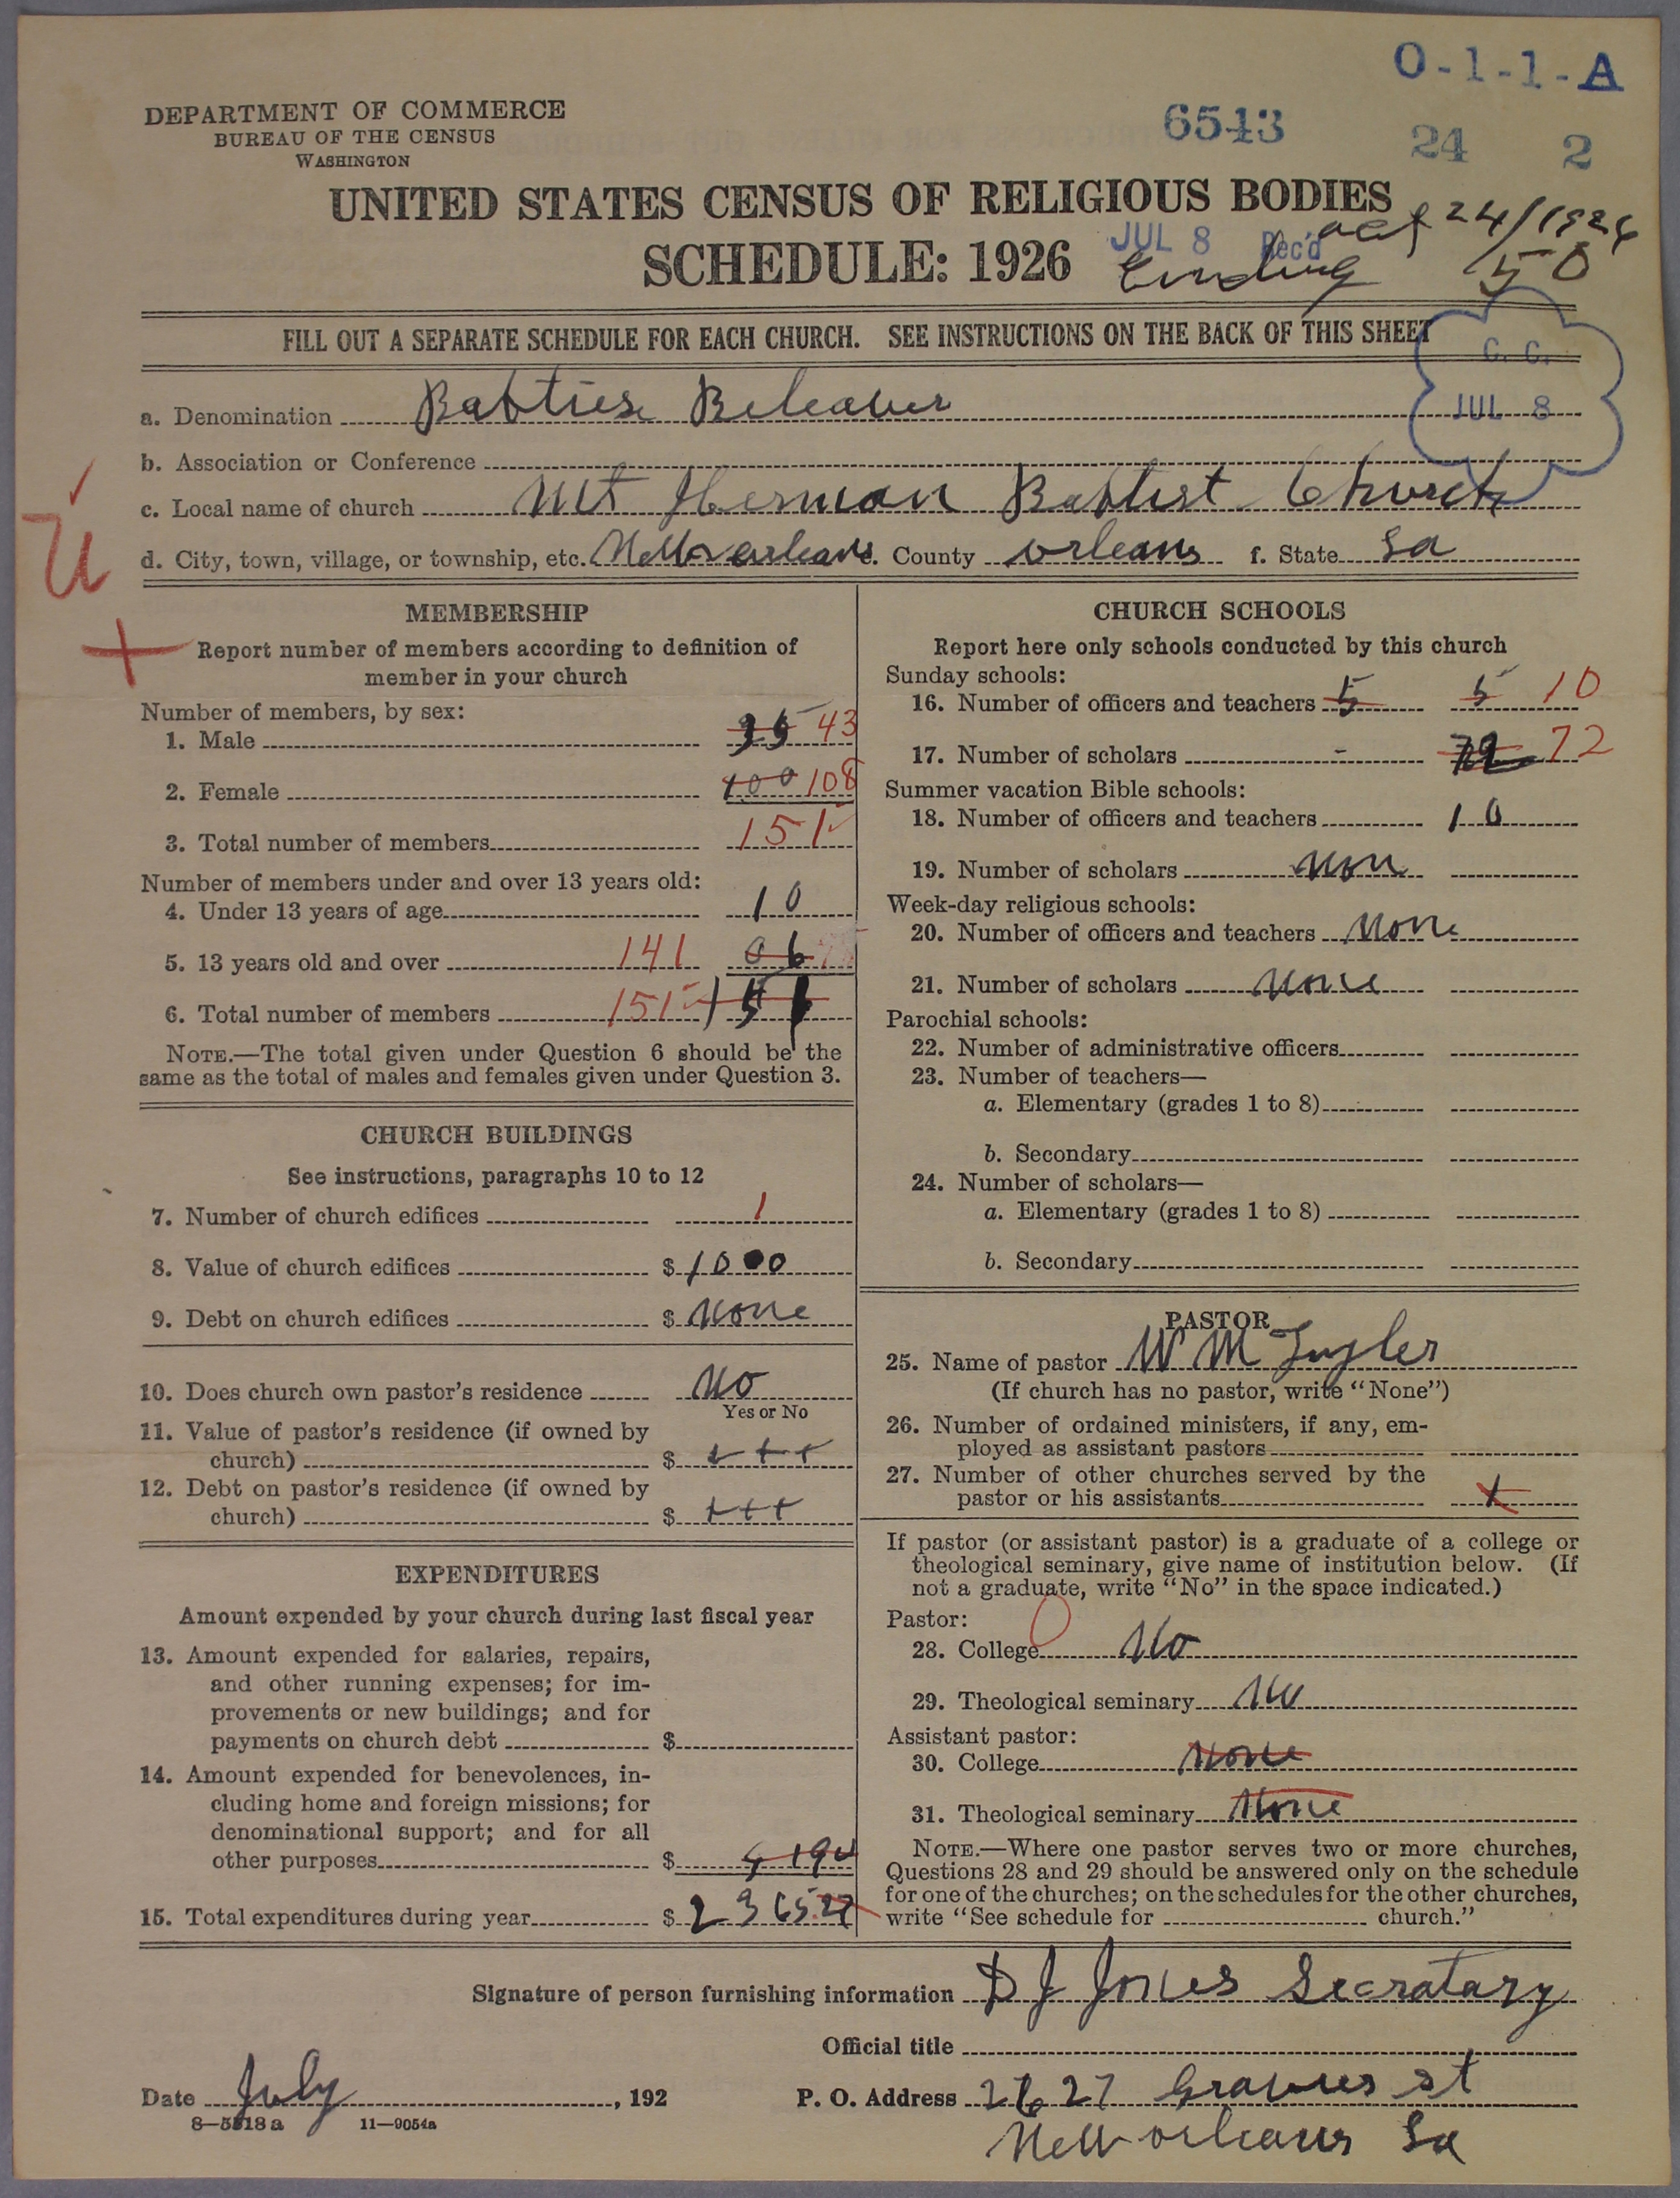 O-1-1-A
DEPARTMENT OF COMMERCE
BUREAU OF THE CENSUS
WASHINGTON
6543
24 2
UNITED STATES CENSUS OF RELIGIOUS BODIES
oct 24/1926
SCHEDULE: 1926
JUL 8 Rec'd
Ending 50
FILL OUT A SEPARATE SCHEDULE FOR EACH CHURCH. SEE INSTRUCTIONS ON THE BACK OF THIS SHEET
C. C.
JUL 8
a. Denomination Babtiese Beleaver
b. Association or Conference
c. Local name of church Mt Herman Babtist Church
d. City, town, village, or township, etc. New orleans e. County orleans f. State La
MEMBERSHIP
Report number of members according to definition of
member in your church
Number of members, by sex:
1. Male 35 43
2. Female 100 108
3. Total number of members 151
Number of members under and over 13 years old:
4. Under 13 years of age 10
5. 13 years old and over 141 06
6. Total number of members 151 151
NOTE.—The total given under Question 6 should be the
same as the total of males and females given under Question 3.
CHURCH BUILDINGS
See instructions, paragraphs 10 to 12
7. Number of church edifices 1
8. Value of church edifices $ 1000
9. Debt on church edifices $ None
10. Does church own pastor's residence No
Yes or No
11. Value of pastor's residence (if owned by
church) $ + + +
12. Debt on pastor's residence (if owned by
church) $ + + +
EXPENDITURES
Amount expended by your church during last fiscal year
13. Amount expended for salaries, repairs,
and other running expenses; for im-
provements or new buildings; and for
payments on church debt $
14. Amount expended for benevolences, in-
cluding home and foreign missions; for
denominational support; and for all
other purposes $
15. Total expenditures during year $ 2365.27
CHURCH SCHOOLS
Report here only schools conducted by this church
Sunday schools:
16. Number of officers and teachers 5 5 10
17. Number of scholars - 72 72
Summer vacation Bible schools:
18. Number of officers and teachers 10
19. Number of scholars Non
Week-day religious schools:
20. Number of officers and teachers None
21. Number of scholars None
Parochial schools:
22. Number of administrative officers
23. Number of teachers—
a. Elementary (grades 1 to 8)
b. Secondary
24. Number of scholars—
a. Elementary (grades 1 to 8)
b. Secondary
PASTOR
25. Name of pastor W M Taylor
(If church has no pastor, write "None")
26. Number of ordained ministers, if any, em-
ployed as assistant pastors
27. Number of other churches served by the
pastor or his assistants
If pastor (or assistant pastor) is a graduate of a college or
theological seminary, give name of institution below. (If
not a graduate, write "No" in the space indicated.)
Pastor:
28. College 0 No
29. Theological seminary No
Assistant pastor:
30. College None
31. Theological seminary None
NOTE.—Where one pastor serves two or more churches,
Questions 28 and 29 should be answered only on the schedule
for one of the churches; on the schedules for the other churches,
write "See schedule for church."
Signature of person furnishing information D J Jones Secratary
Official title
Date July , 192
P. O. Address 2627 st
New orleans La
8—5818 a 11—9054a